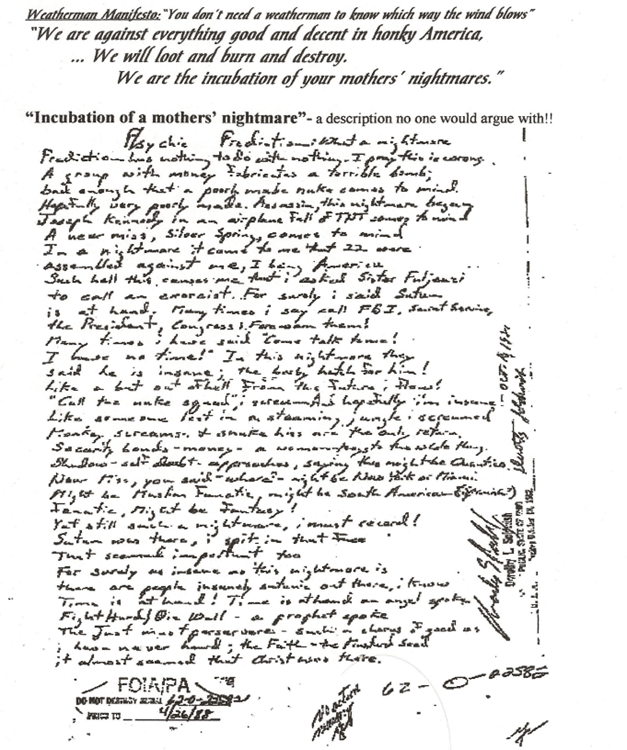 Weatherman Manifesto: "You don't need a weatherman to know which way the wind blows"
"We are against everything good and decent in honky America,
... We will loot and burn and destroy.
We are the incubation of your mothers' nightmares."
"Incubation of a mothers' nightmare"- a description no one would argue with!!
Psychic Prediction: What a nightmare
Prediction has nothing to do with nothing. I pray this is wrong.
A group with money fabricates a terrible bomb;
bad enough that a poorly made nuke comes to mind.
Hopefully very poorly made. Assassin, this nightmare began
Joseph Kennedy in an airplane full of TNT comes to mind
A near miss, Silver Spring, comes to mind
In a nightmare it came to me that 22 were
assembled against me, I being America
Such hell this causes me that i asked Sister
to call an exorcist. For surely i said Satan
is at hand. Many times i say call FBI, Secret Service,
the President, Congress. Forewarn them!
Many times i have said "Come talk to me!
I have no time!" In this nightmare they
said he is insane; the booby hatch for him!
Like a bat out of hell From the Future;
"Call the nuke squad"; i scream. And hopefully i'm insane
Like someone lost in a steaming jungle i screamed
Monkey screams & snake hiss are the only return.
Security bonds - money - a woman - the whole thing.
Shadow - self doubt - approaches, saying this might be Quantico.
Near Miss, you said - "where" - might be New York or Miami
Might be Muslim Fanatic, might be South American
Fanatic, Might be Fantasy!
Yet still such a nightmare, i must record!
Satan was there, i spit in that
That seemed important too
For surely as insane as this nightmare is
there are people insanely satanic out there, i know
Time is at hand! Time is at hand an angel spoke
Fight Hard & Die Well - a prophet spoke
The Just must persevere - such a chorus of good as
i have never heard; the Faith - the Mustard Seed
it almost seemed that Christ was there.
Dorothy L.
FOIA/PA
DO NOT DESTROY
PRIOR TO 4/26/88
62-0-